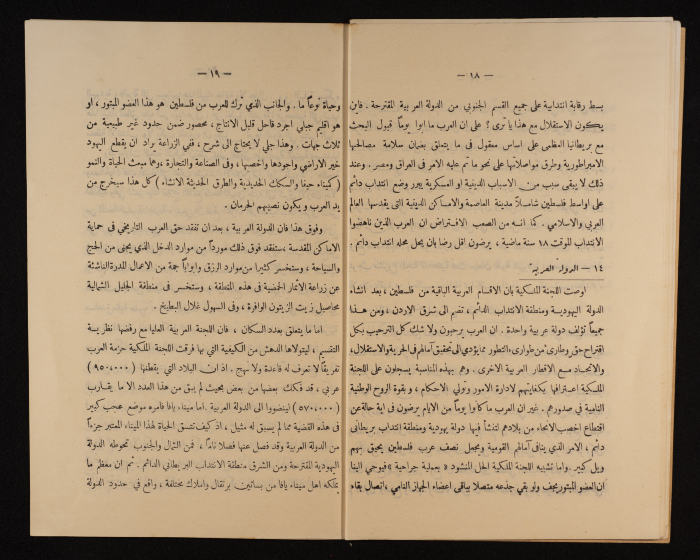 — ١٨ —
بسط رقابة انتدابية على جميع القسم الجنوبي من الدولة العربية المقترحة . فاين
يكون الاستقلال مع هذا يا ترى ؟ على ان العرب ما ابوا يوماً قبول البحث
مع بريطانيا العظمى على اساس معقول فى ما يتعلق بضمان سلامة مصالحها
الامبراطورية وطرق مواصلاتها على نحو ما تم عليه الامر فى العراق ومصر . وعند
ذلك لا يبقى سبب من الاسباب الدينية او العسكرية يبرر وضع انتداب دائم
على اواسط فلسطين شاملاً مدينة العاصمة والاماكن الدينية التى يقدسها العالم
العربي والاسلامي . كما انه من الصعب الافتراض ان العرب الذين ناهضوا
الانتداب المؤقت ١٨ سنة ماضية ، يرضون اقل رضا بان يحل محله انتداب دائم .
١٤ — الدولة العربية
اوصت اللجنة الملكية بان الاقسام العربية الباقية من فلسطين ، بعد انشاء
الدولة اليهودية ومنطقة الانتداب الدائم ، تضم الى شرق الاردن ، ومن هذا
جميعاً تؤلف دولة عربية واحدة . ان العرب يرحبون ولا شك كل الترحيب بكل
اقتراح حق وطارىء من طوارىء التطور مما يؤدي الى تحقيق آمالهم فى الحرية والاستقلال ،
والاتحاد مع الاقطار العربية الاخرى . وهم بهذه المناسبة يسجلون على اللجنة
الملكية اعترافها بكفايتهم لادارة الامور وتولي الاحكام ، وبقوة الروح الوطنية
النامية فى صدورهم . غير ان العرب ما كانوا يوماً من الايام يرضون فى اية حالة عن
اقتطاع اخصب الانحاء من بلادهم لتنشأ فيها دولة يهودية ومنطقة انتداب بريطانى
دائم ، الامر الذي ينافى آمالهم القومية ويجعل نصف عرب فلسطين يحيق بهم
ويل كبير . واما تشبيه اللجنة الملكية الحل المنشود « بعملية جراحية » فيوحي الينا
ان العضو المبتور يجف ولو بقي جذعه متصلا بباقى اعضاء الجهاز النامي ، اتصال بقاء
— ١٩ —
وحياة نوعاً ما . والجانب الذي ترك للعرب من فلسطين هو هذا العضو المبتور ، او
هو اقليم جبلي اجرد قاحل قليل الانتاج ، محصور ضمن حدود غير طبيعية من
ثلاث جهات . وهذا جلي لا يحتاج الى شرح ، ففى الزراعة يراد ان يقطع اليهود
خير الاراضي واجودها واخصبها ، وفى الصناعة والتجارة ، وهما مبعث الحياة والنمو
( كميناء حيفا والسكك الحديدية والطرق الحديثة الانشاء ) كل هذا سيخرج من
يد العرب ويكون نصيبهم الحرمان .
وفوق هذا فان الدولة العربية ، بعد ان تفقد حق العرب التاريخي فى حماية
الاماكن المقدسة ، ستفقد فوق ذلك مورداً من موارد الدخل الذي يجنى من الحج
والسياحة ، وستخسر كثيرا من موارد الرزق وابواباً جمة من الاعمال المدرة الناشئة
عن زراعة الاثمار الحمضية فى هذه المنطقة ، وستخسر فى منطقة الجليل الشمالية
محاصيل زيت الزيتون الوافرة ، وفى السهول غلال البطيخ .
اما ما يتعلق بعدد السكان ، فان اللجنة العربية العليا مع رفضها نظرية
التقسيم ، ليتولاها الدهش من الكيفية التى بها فرقت اللجنة الملكية حزمة العرب
تفريقاً لا نعرف له قاعدة ولا نهج . اذ ان البلاد التى يقطنها ( ٩٥٠،٠٠٠ )
عربي ، قد فككت بعضها من بعض بحيث لم يبق من هذا العدد الا ما يقارب
( ٥٧٠،٠٠٠ ) لينضووا الى الدولة العربية . اما ميناء يافا فامره موضع عجب كبير
فى هذه القضية مما لم يسبق له مثيل ، اذ كيف تتسق الحياة لهذا الميناء المعتبر جزءاً
من الدولة العربية وقد فصل عنها فصلا تاماً ، فمن الشمال والجنوب تحوطه الدولة
اليهودية المقترحة ومن الشرق منطقة الانتداب البريطاني الدائم . ثم ان معظم ما
يملكه اهل ميناء يافا من بساتين برتقال واملاك مختلفة ، واقع فى حدود الدولة